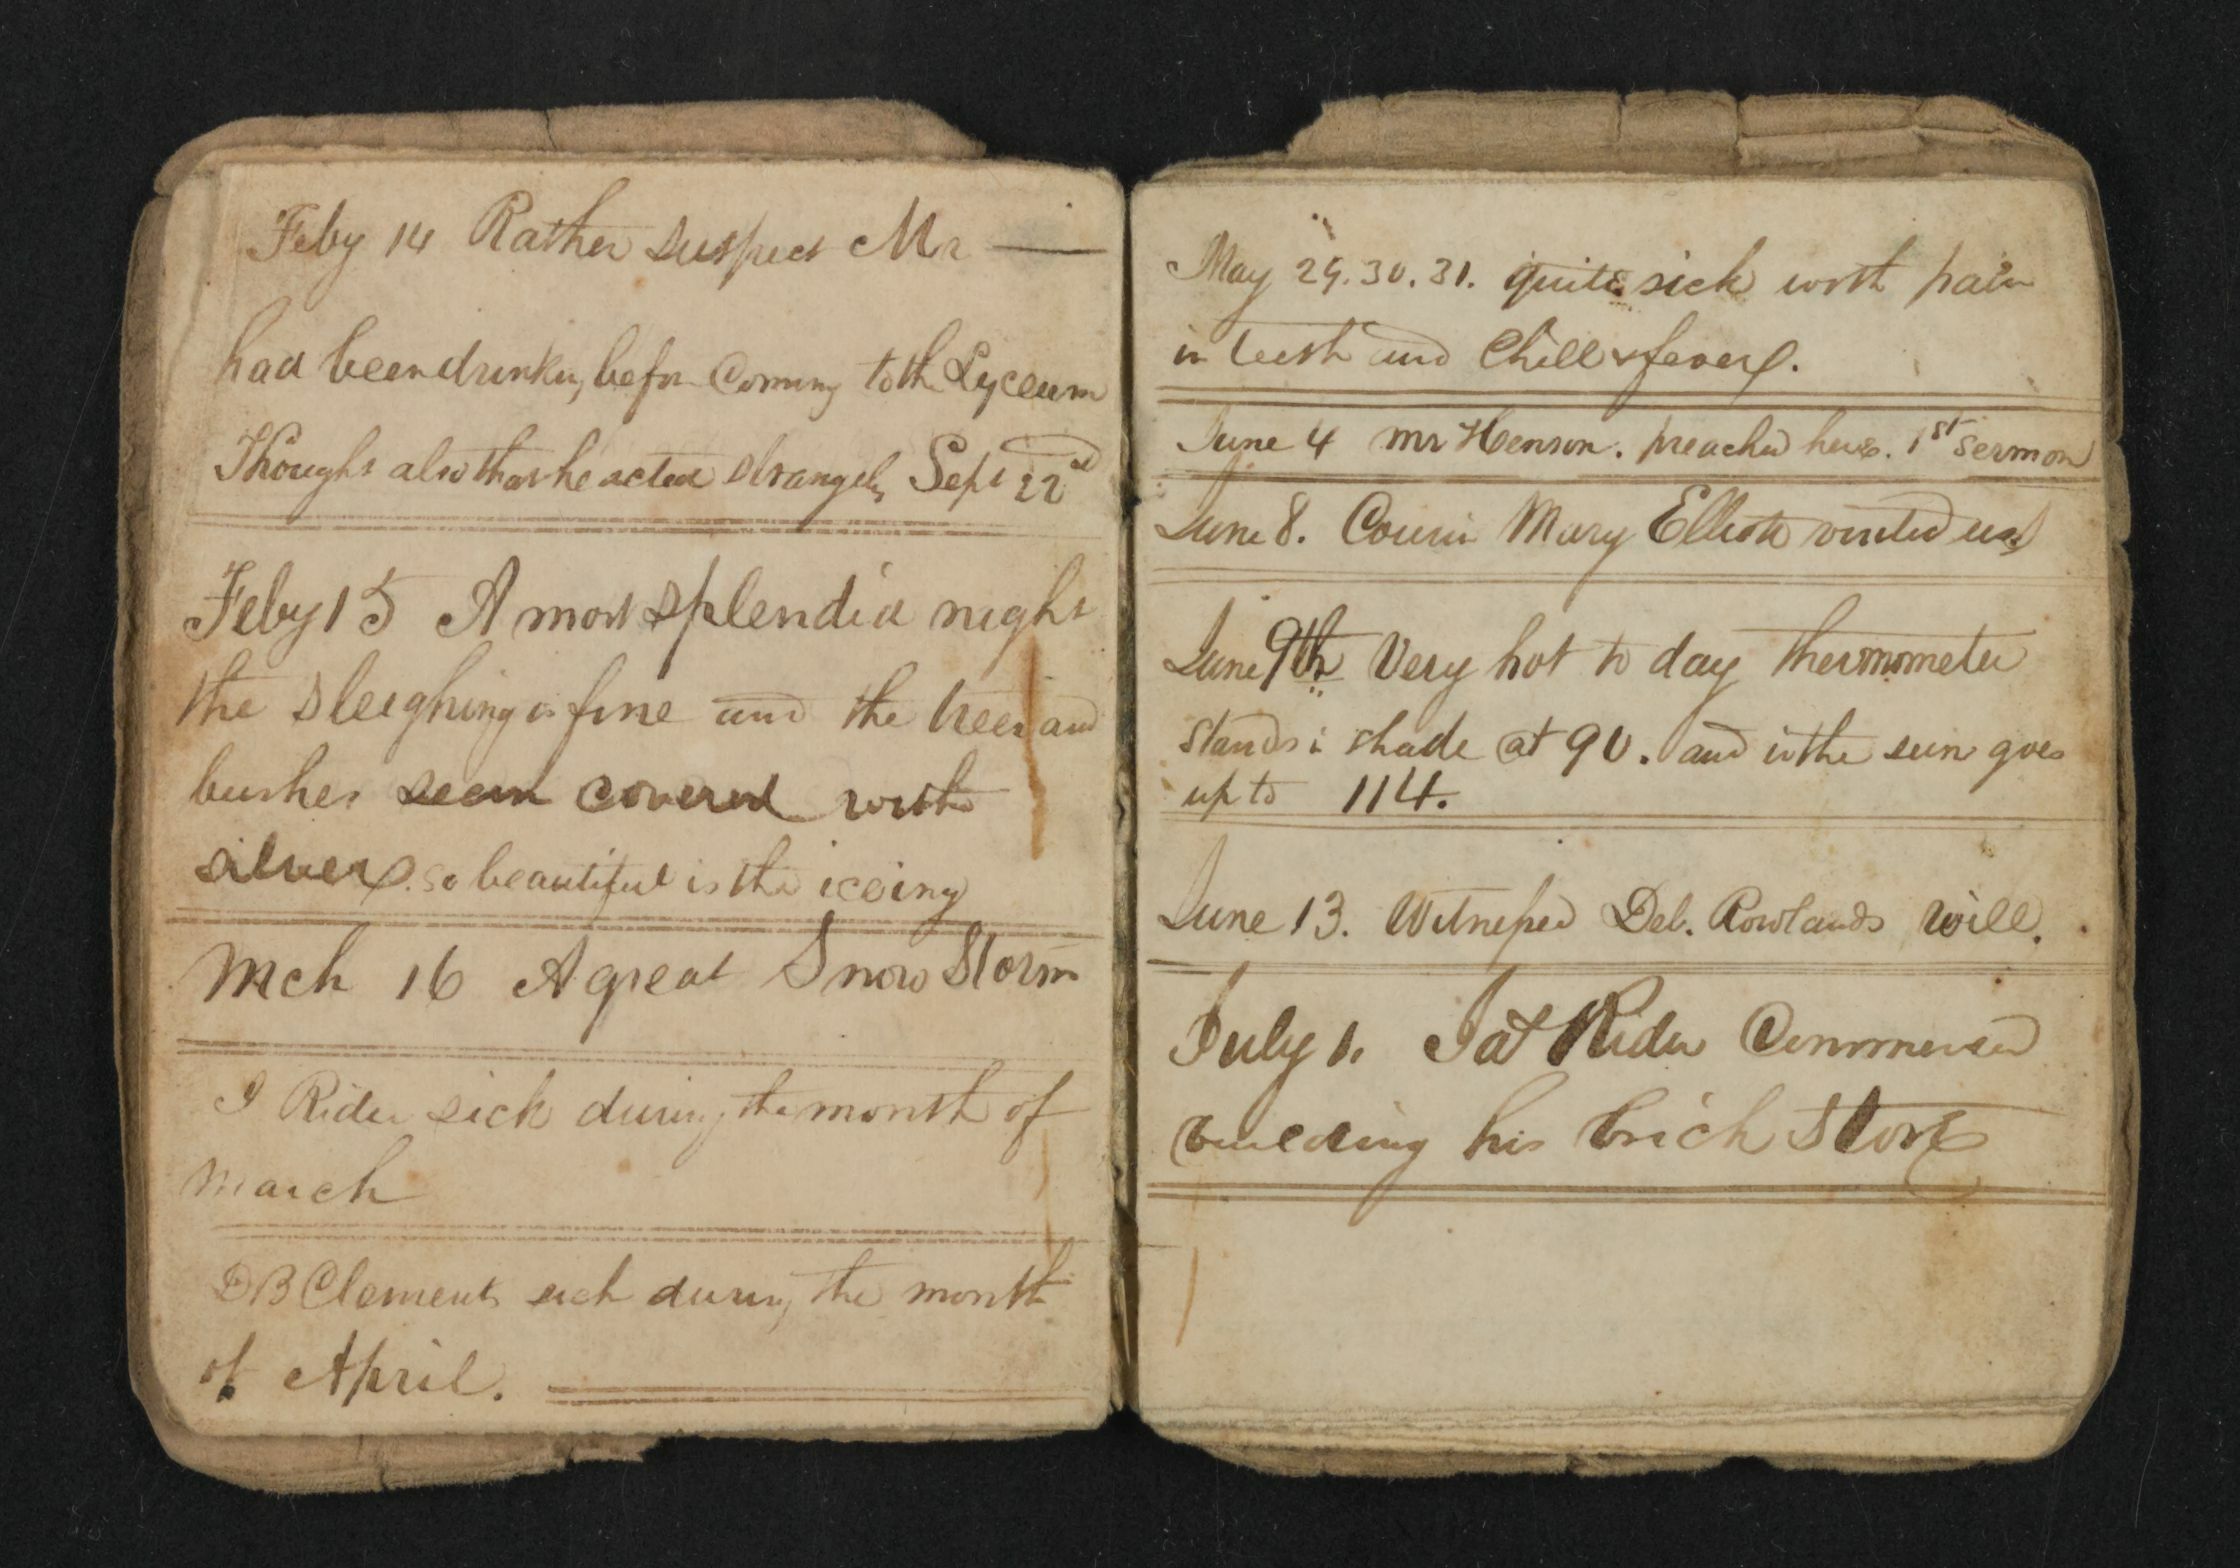 Feby 14 Rather suspect Mr —
had been drinking before coming to the Lyceum
Thought also that he acted strangely Sept 22d
Feby 15 A most splendid night
the sleighing is fine and the trees and
bushes seem covered with
silver. so beautiful is the iceing
Mch 16 A great Snow Storm
I Rider sick during the month of
March
D B Clement sick during the month
of April.
May 29. 30. 31. quite sick with pain
in teeth and Chill & fever.
June 4 Mr Henson. preached here. 1st sermon
June 8. Cousin Mary Elliott visited us
June 9th Very hot to day thermometer
stands i shade at 90. and in the sun goes
up to 114.
June 13. Witnessed Deb. Rowlands will.
July 1. I at Rider Commenced
building his brick Store